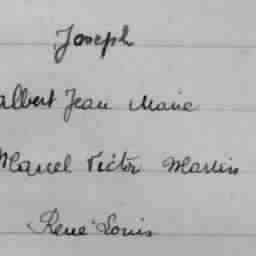 Joseph
albert Jean Marie
Marcel Victor Martin
René Louis